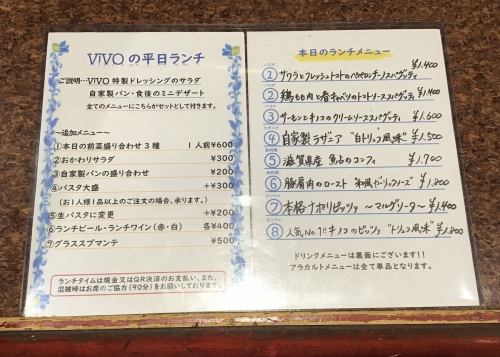 ViVO の平日ランチ
ご説明…ViVO 特製ドレッシングのサラダ
自家製パン・食後のミニデザート
全てのメニューにこちらがセットとして付きます。
～追加メニュー～
①本日の前菜盛り合わせ 3 種 1 人前¥600
②おかわりサラダ ¥300
③自家製パンの盛り合わせ ¥200
④パスタ大盛 +¥300
(お1人様1品以上のご注文の場合、承ります。)
⑤生パスタに変更 +¥200
⑥ランチビール・ランチワイン(赤・白) 各¥400
⑦グラススプマンテ ¥500
ランチタイムは現金又はQR決済のお支払い、また、
混雑時はお席のご協力(90分)をお願いしております。
本日のランチメニュー
パスタ
① サワラとフレッシュトマトのペペロンチーノスパゲッティ ¥1.400
パスタ
② 鶏もも肉と春キャベツのトマトソーススパゲッティ ¥1.400
パスタ
③ サーモンとキノコのクリームソーススパゲッティ ¥1.600
④ 自家製ラザニア "白トリュフ風味" ¥1.500
魚料理
⑤ 滋賀県産 鮎のコンフィ ¥1.700
肉料理
⑥ 豚肩肉のロースト "和風ガーリックソース" ¥1.800
ピッツァ
⑦ 本格ナポリピッツァ ～マルゲリータ～ ¥1.400
ピッツァ
⑧ 人気No.1!! キノコのピッツァ "トリュフ風味"
ドリンクメニューは裏面にございます!!
アラカルトメニューは全て単品となります。